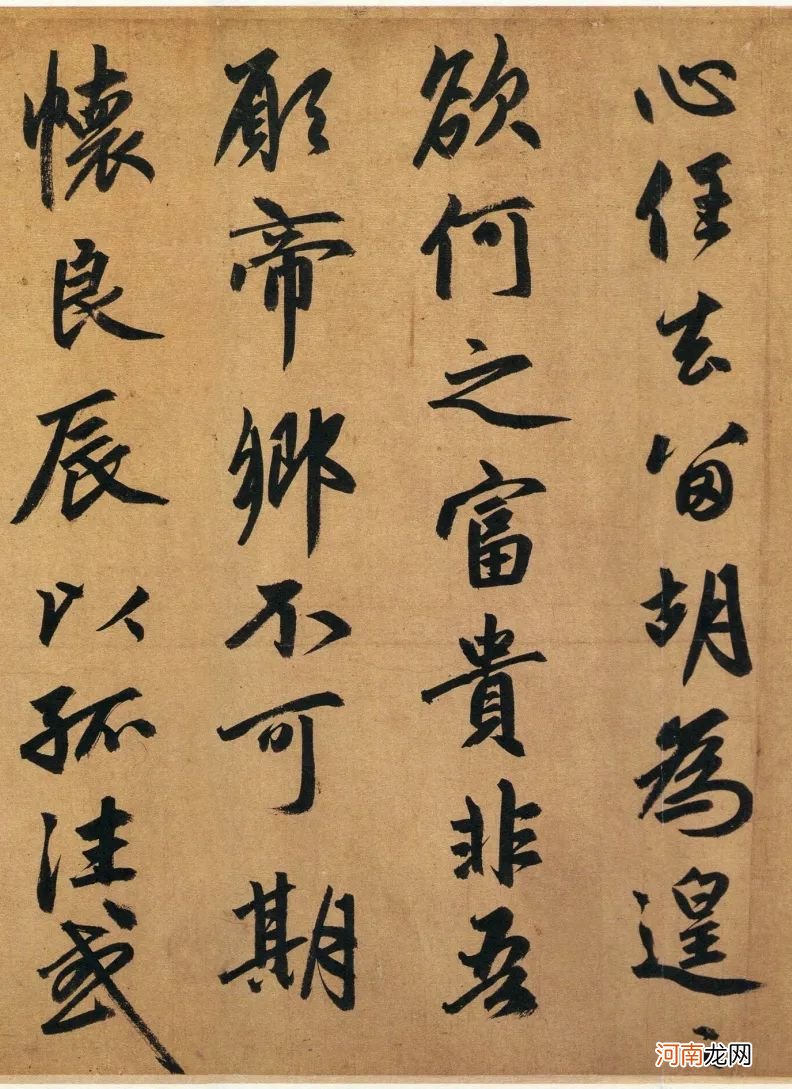 心任去留胡為遑〻
欲何之富貴非吾
願帝鄉不可期
懷良辰以孤往或
河南龙网